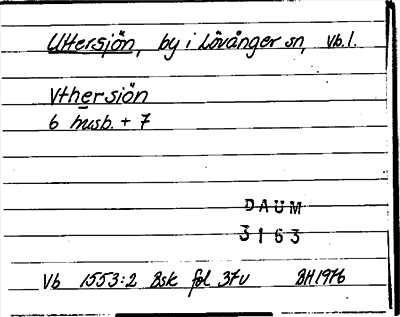 Uttersjön, by i Lövånger sn, Vb.l.
Vthersiön
6 husb. + 7
DAUM
3163
Vb 1553:2 Bsk fol 37v BH 1976